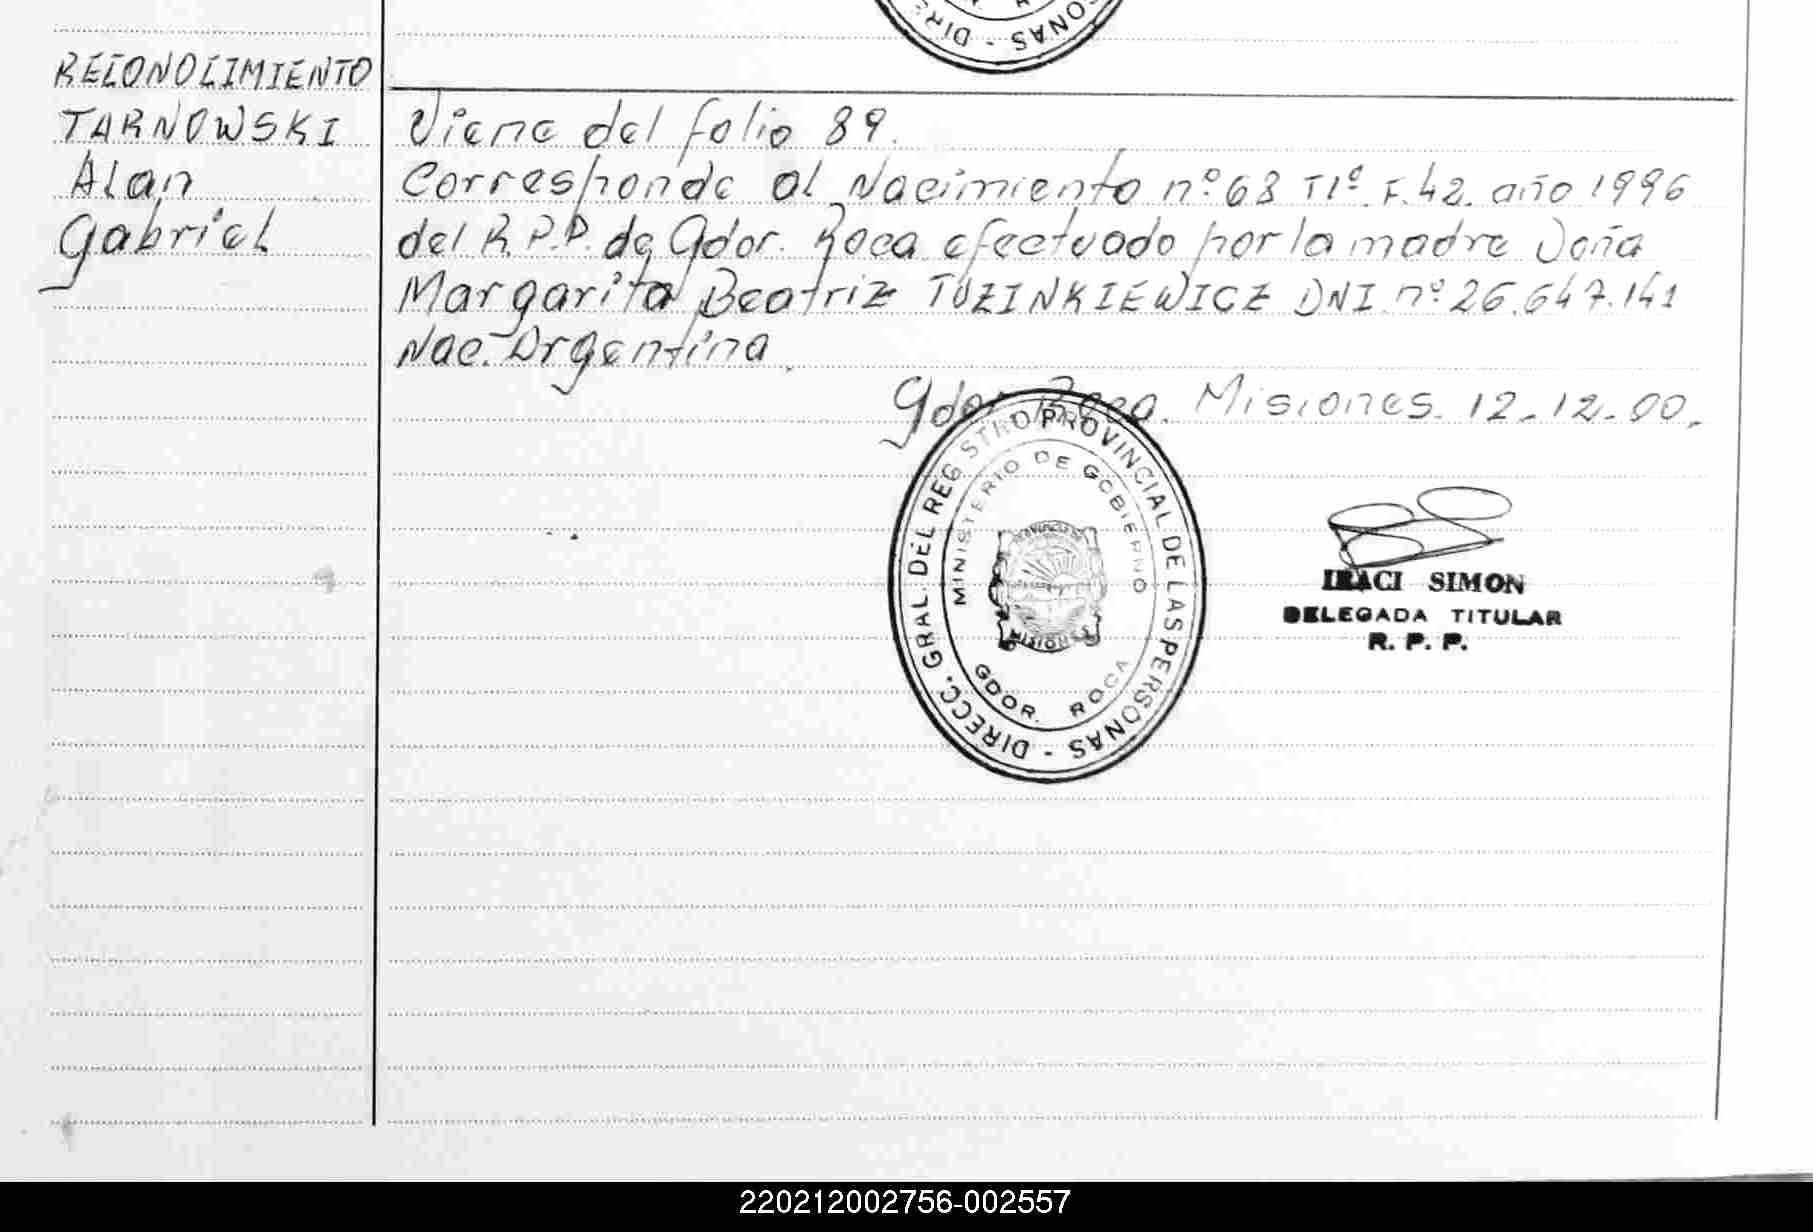 RECONOCIMIENTO
TARNOWSKI
Alan
Gabriel
Viene del folio 89.
Corresponde al Nacimiento nº 68 Tº1º. F. 42. año 1996
del R.P.P. de Gdor. Roca efectuado por la madre Doña
Margarita Beatriz TUZINKIEWICZ DNI. nº 26.647.141
Nac. Argentina.
Gdor. Roca. Misiones. 12-12-00.
DIRECC. GRAL. DEL REGISTRO PROVINCIAL DE LAS PERSONAS -
MINISTERIO DE GOBIERNO
GDOR. ROCA
IRACI SIMON
DELEGADA TITULAR
R. P. P.
220212002756-002557